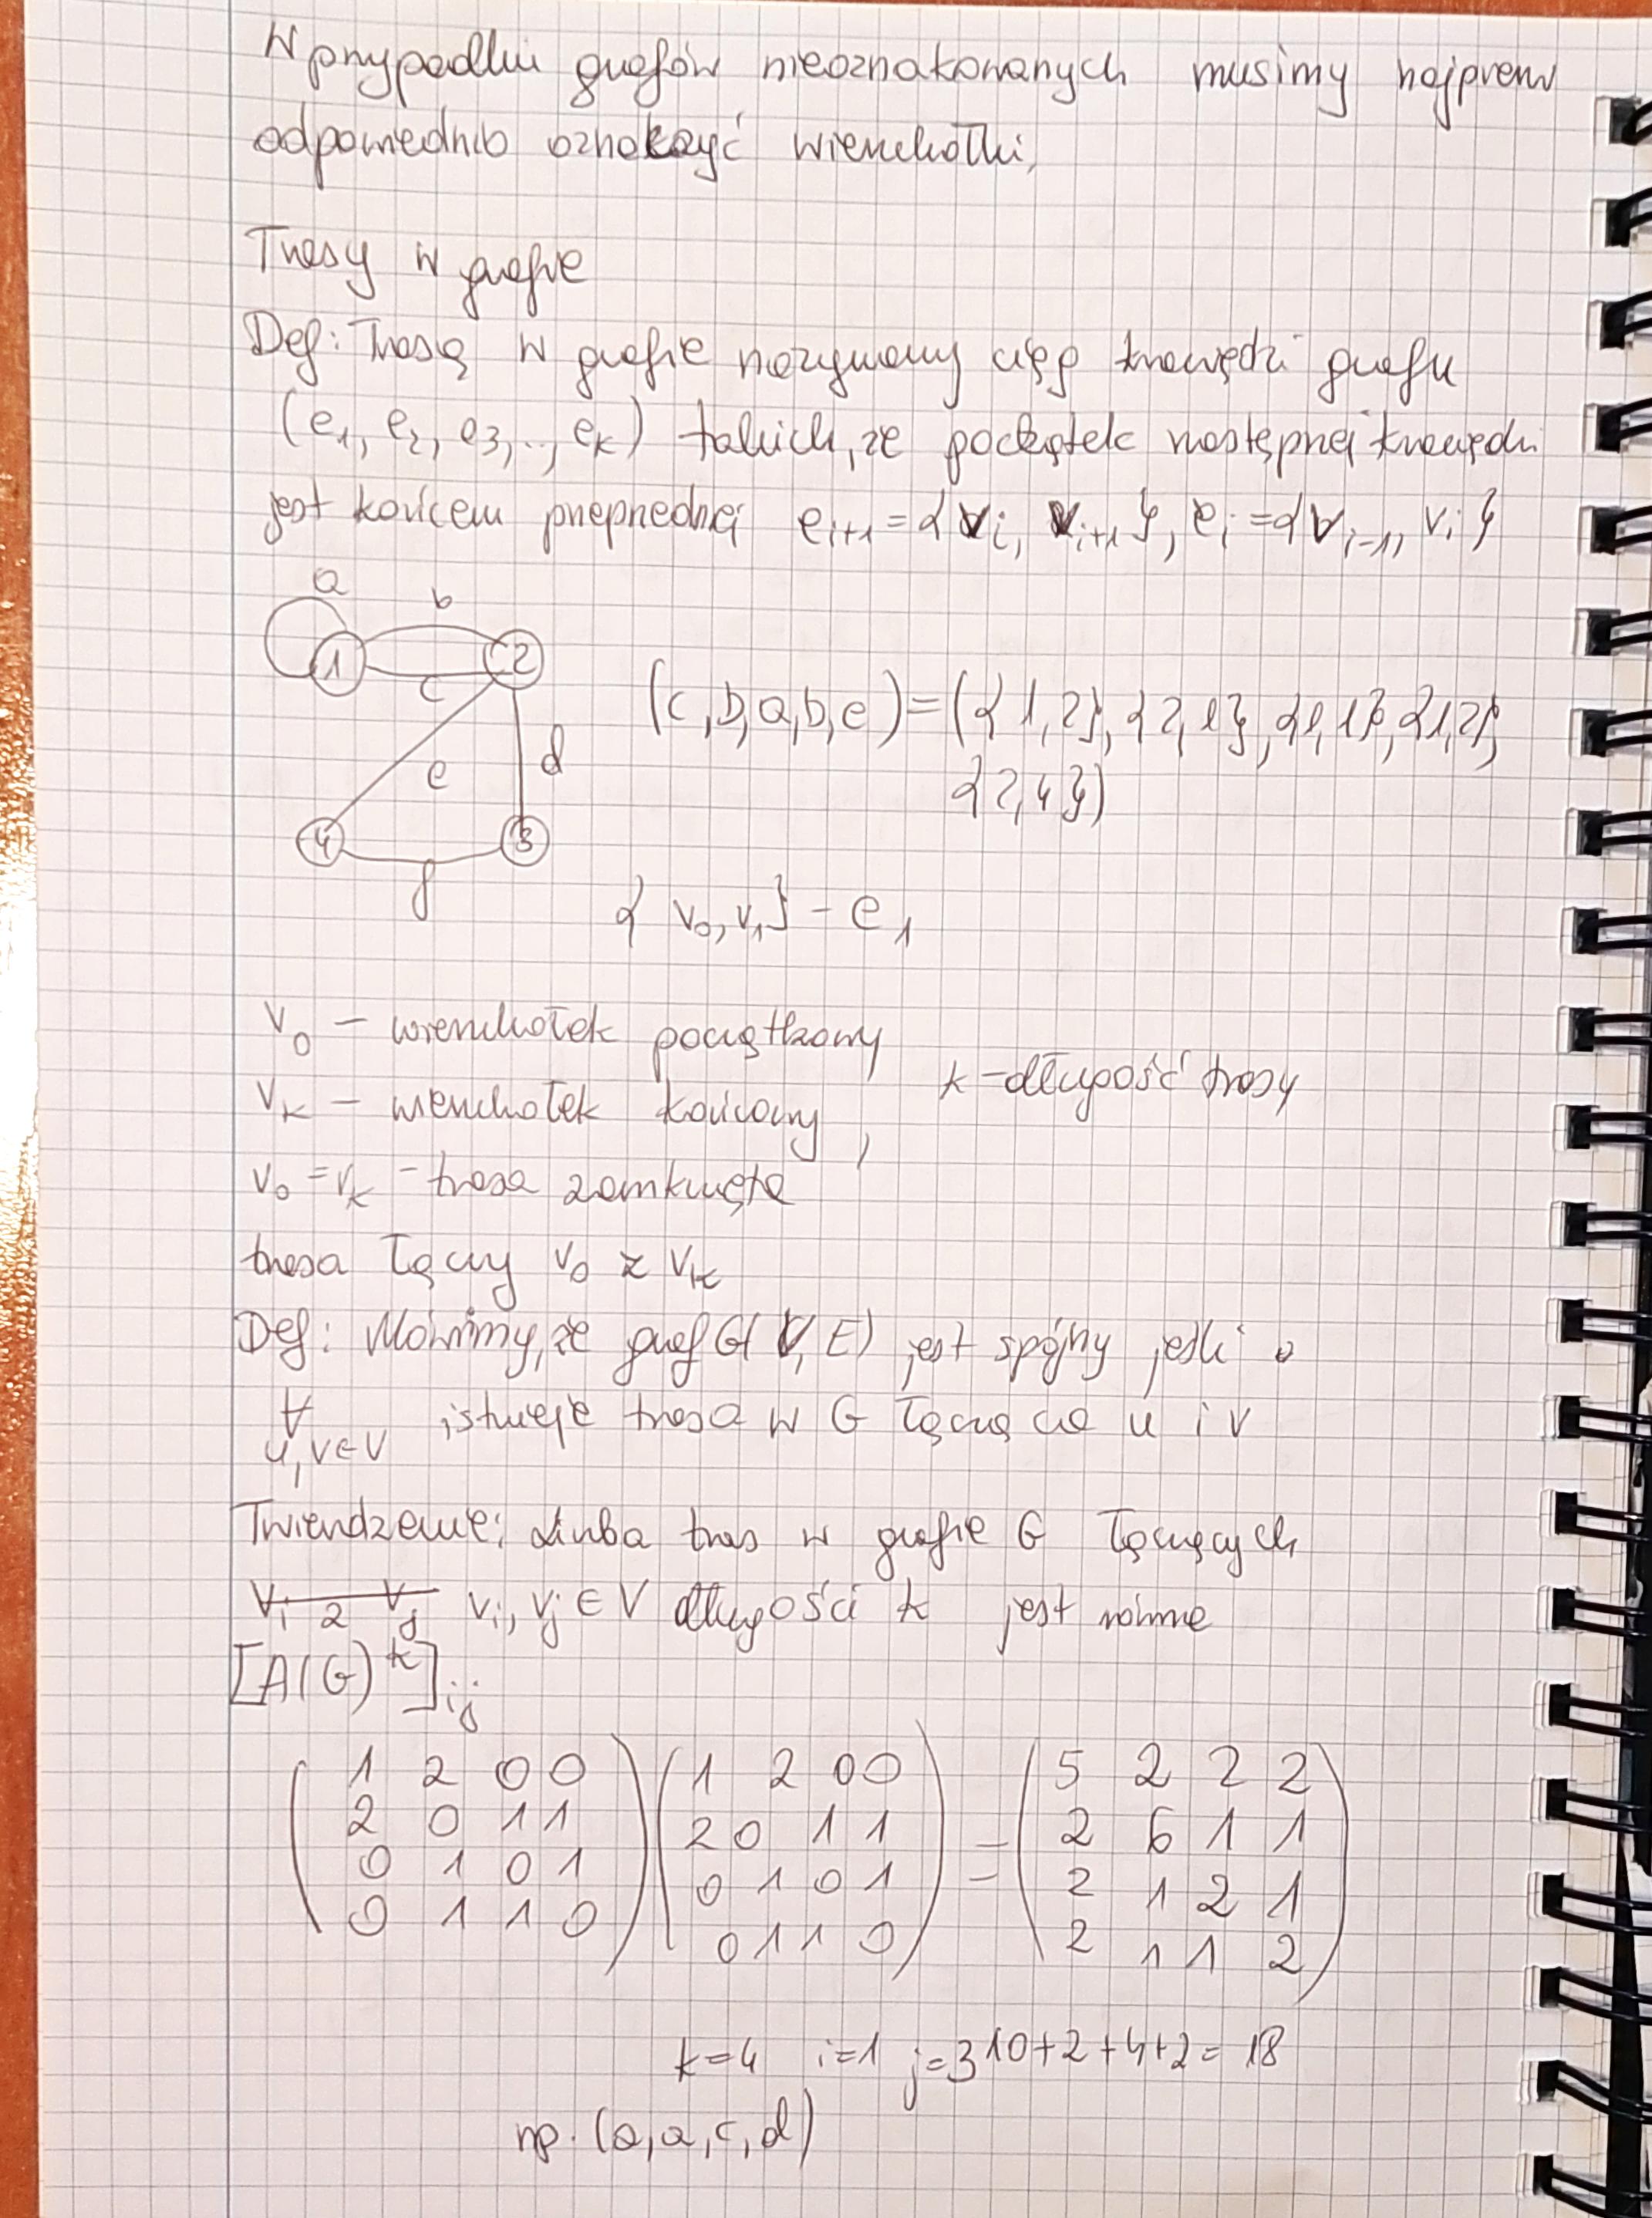 W przypadku grafów nieoznakowanych musimy najpierw
odpowiednio oznaczyć wierzchołki,
Trasy w grafie
Def: Trasą w grafie nazywamy ciąg krawędzi grafu
(e₁, e₂, e₃, .., eₖ) takich, że początek następnej krawędzi
jest końcem poprzedniej eᵢ₊₁ = {vᵢ, vᵢ₊₁}, eᵢ = {vᵢ₋₁, vᵢ}
a b
1 2
c
e d
4 3
f
(c, b, a, b, e) = ({1,2}, {2,1}, {1,1}, {1,2},
{2,4})
{v₀, v₁} - e₁
v₀ – wierzchołek początkowy
k – długość trasy
vₖ – wierzchołek końcowy,
v₀ = vₖ – trasa zamknięta
trasa łączy v₀ z vₖ
Def: Mówimy, że graf G(V, E) jest spójny jeśli
∀ u, v ∈ V istnieje trasa w G łącząca u i v
Twierdzenie: Liczba tras w grafie G łączących
vᵢ z vⱼ vᵢ, vⱼ ∈ V długości k jest równe
[A(G)ᵏ]ᵢⱼ
(1 2 0 0) (1 2 0 0) (5 2 2 2)
(2 0 1 1) (2 0 1 1) = (2 6 1 1)
(0 1 0 1) (0 1 0 1) (2 1 2 1)
(0 1 1 0) (0 1 1 0) (2 1 1 2)
k=4 i=1 j=3 10+2+4+2 = 18
np. (a, a, c, d)